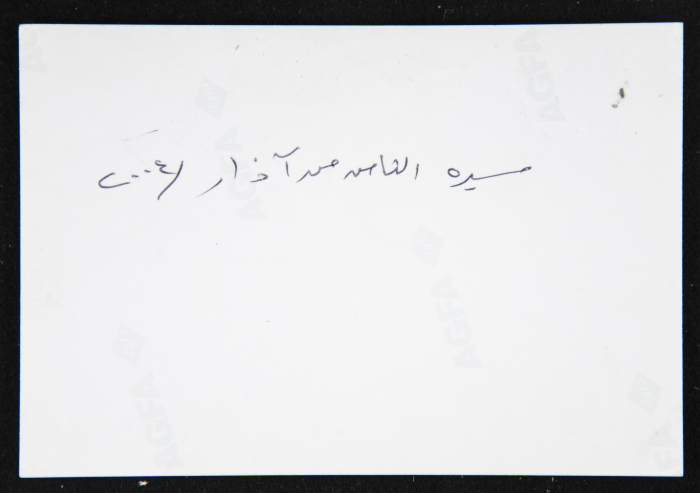 مسيره الثامن من آذار /٢٠٠٤
AGFA
AGFA
AGFA
AGFA
AGFA